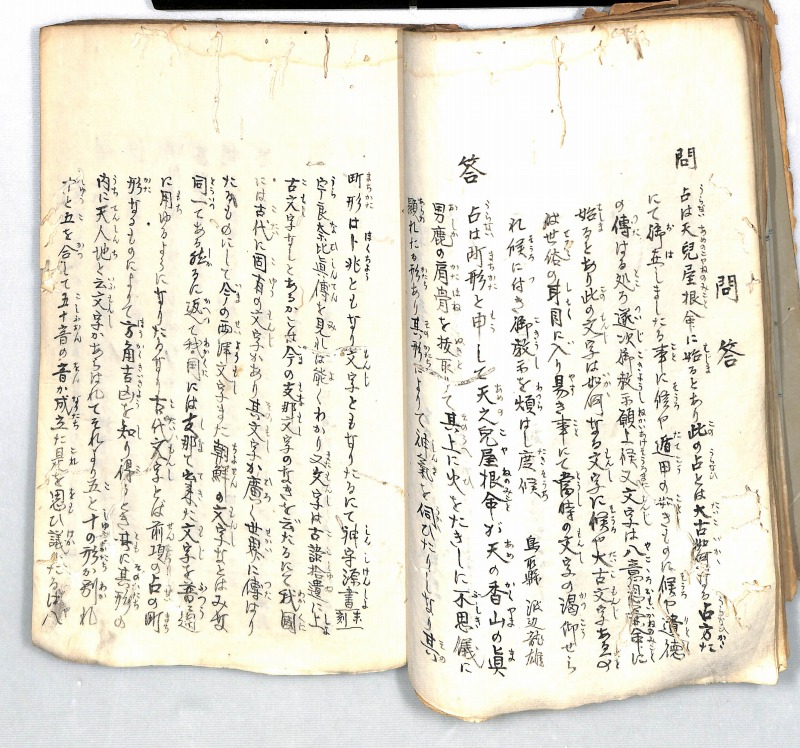 問答
問
占は天兒屋根命に始るとあり此の占とは太古如何なる占方だ
にて
事に候や遁甲の如きものに候や道徳
の傳はる処ろ逐次御教示願上候又文字は八意思兼命に
始るとあり此の文字は如何なる文字に候や太古文字ある
世後の耳目に入り易き事にて當時の文字の渇仰せら
れ候に付き御教示を煩はし度候
渡辺龍雄
答
占は町形と申して天之兒屋根命が天の香山の眞
男鹿の肩骨を抜取て其上に火をたきしに不思儀に
顕れたか形あり其形によりて神氣を伺ひたりしなり其
町形は卜兆ともなり文字ともなりたるにて神字源書
未刻
眞傳を見れば能くわかり又文字は古語拾遺に上
古文字なしとあることは今の支那文字のなきを云たるにて我國
には古代に固有の文字があり其文字か廣く世界に傳はり
たるものにして今の西洋文字また朝鮮の文字などはみな
同一である然るに返て我國には支那て出来た文字を普通
に用ゆるようになりたるなり古代文字とは前項の占の町
形なるものによりて方角吉凶を知り得るとき其に其形の
内に天人地と云文字かあらはれてそれより五と十の形か別れ
十と五を合して五十音の音か成立た是を思ひ議りたるは八